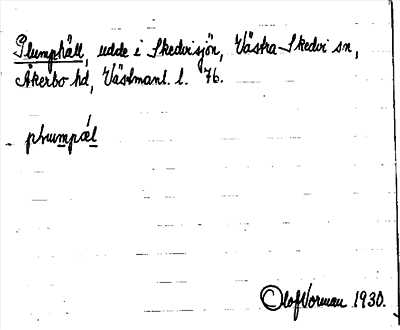 Plumphäll, udde i Skedvisjön, Västra-Skedvi sn,
Åkerbo hd, Västmanl. l. 76.
Olof Vorman 1930.